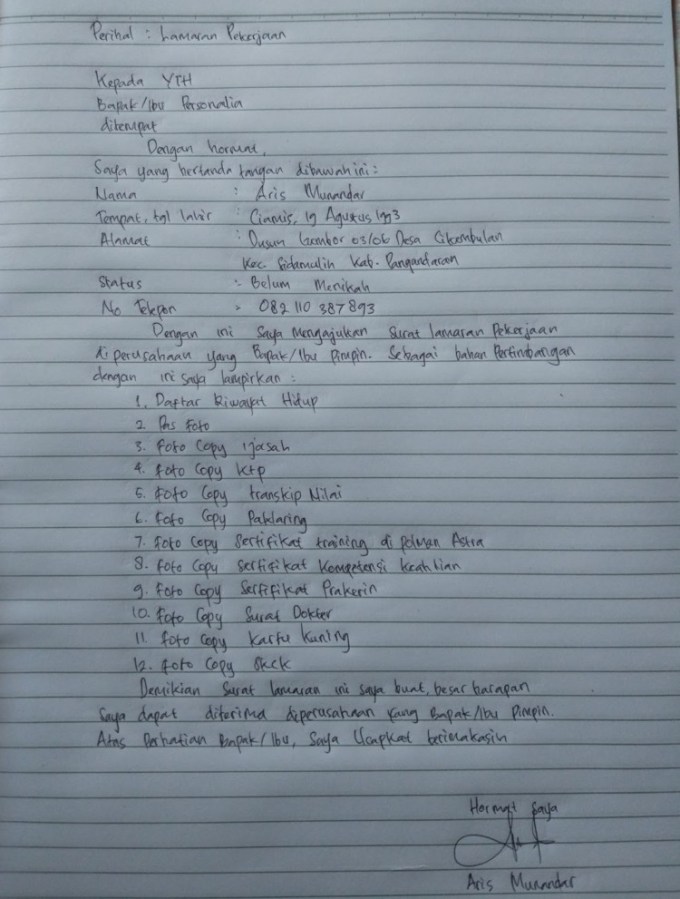 Perihal : Lamaran Pekerjaan
Kepada YTH
Bapak/Ibu Personalia
ditempat
Dengan hormat,
Saya yang bertanda tangan dibawah ini :
Nama : Aris Munandar
Tempat, tgl lahir : Ciamis, 19 Agustus 1993
Alamat : Dusun 03/06 Desa Cikembulan
Kec. Sidamulih Kab. Pangandaran
Status : Belum Menikah
No Telepon : 082 110 387 893
Dengan ini saya mengajukan surat lamaran Pekerjaan
diperusahaan yang Bapak/Ibu Pimpin. Sebagai bahan Pertimbangan
dengan ini saya lampirkan :
1. Daftar Riwayat Hidup
2. Pas foto
3. foto Copy ijasah
4. foto Copy ktp
5. foto Copy transkip Nilai
6. foto Copy Paklaring
7. foto Copy Sertifikat training di polman Astra
8. foto Copy Sertifikat Kompetensi Keahlian
9. foto Copy Sertifikat Prakerin
10. foto Copy Surat Dokter
11. foto Copy kartu kuning
12. foto Copy Skck
Demikian Surat lamaran ini saya buat, besar harapan
saya dapat diterima diperusahaan yang Bapak/Ibu Pimpin.
Atas Perhatian Bapak/Ibu, Saya Ucapkat terimakasih
Hormat Saya
Aris Munandar